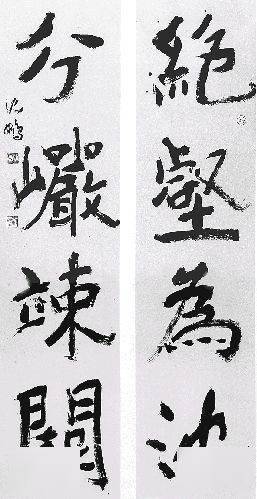 絕壑為池
分巖竦闕
沈鵬